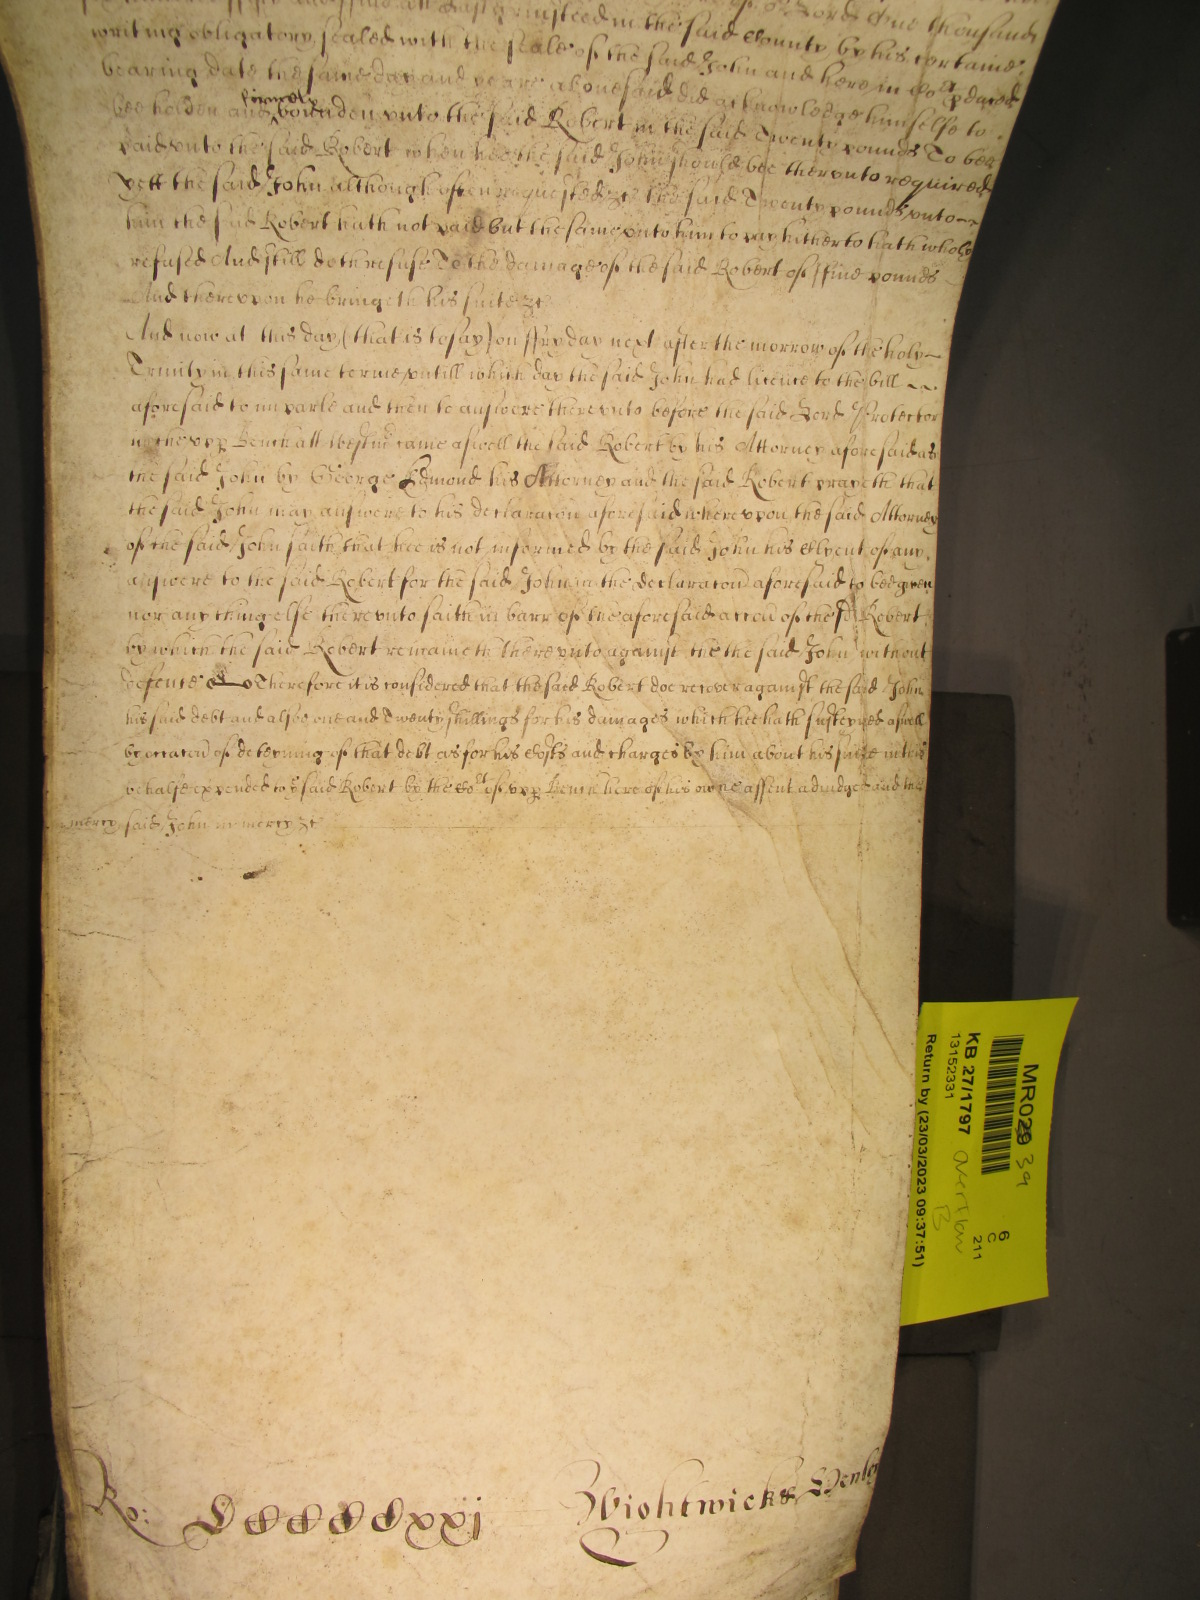 Lord One thousand
att East grinsteed in the said County by his certaine
writing obligatory sealed with the seale of the said John and here in Co:rt shewed
bearing date the same day and yeare abovesaid did acknowledge himselfe to
firmely
bee holden and bounden unto the said Robert in the said Twenty pounds To bee
paid unto the said Robert when hee the said John should bee thereunto required
Yett the said John although often requested &c the said Twenty pounds unto
him the said Robert hath not paid but the same unto him to pay hitherto hath wholy
refused And still doth refuse To the damage of the said Robert of ffive pounds
And thereupon he bringeth his suite &c
And now at this day (that is to say) on ffryday next after the morrow of the holy
Trinity in this same terme untill which day the said John had licence to the bill
aforesaid to imparle and then to answere thereunto before the said Lord Protector
in the upp Bench att Westmr came aswell the said Robert by his Attorney aforesaid as
the said John by George Edmond his Attorney and the said Robert prayeth that
the said John may answere to his declaracon aforesaid whereupon the said Attorney
of the said John saith that hee is not informed by the said John his Clyent of any
answere to the said Robert for the said John in the declaracon aforesaid to bee given
nor any thing else thereunto saith in barr of the aforesaid accon of the sd Robert
by which the said Robert remaineth thereunto against the the said John without
defence Therefore it is considered that the said Robert doe recover against the said John
his said debt and alsoe one and Twenty shillings for his damages which hee hath susteyned aswell
by occacon of deteyning of that debt as for his Costs and charges by him about his suite in this
behalfe expended to ye said Robert by the Cort of upp Bench here of his owne assent adiudged and the
mercy said John in mercy &c
Ro: CCCCCxxj Wightwick & Henley
MR029 39
6
C
211
KB 27/1797 overflow
B
13152331
Return by (23/03/2023 09:37:51)